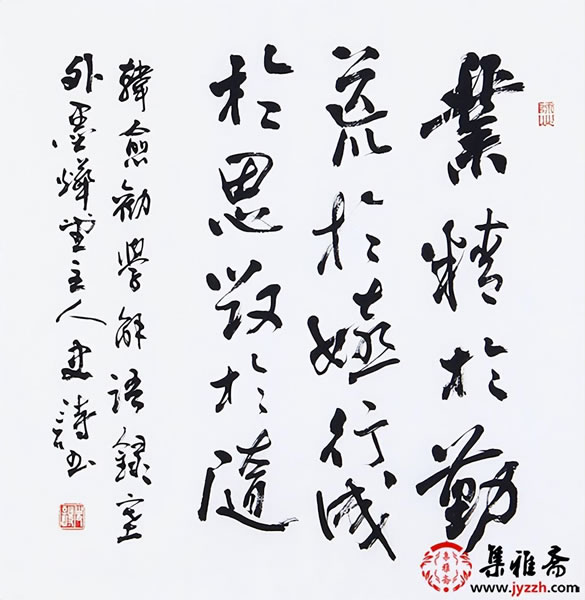 業精於勤
荒於嬉行成
於思毁於隨
韓愈勸學解語錄室
外墨堂主人史
集雅斋
www.jyzzh.com